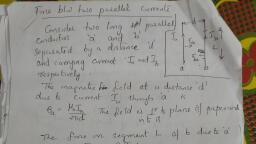 Force b/w two parallel currents
Consider two long parallel
conductors 'a' and 'b'
separated by a distance 'd'
and carrying current Ia and Ib
respectively.
The magnetic field at a distance 'd'
due to current Ia through 'a' is
The field is
to plane of paper and
The force on segment L of b due to 'a'